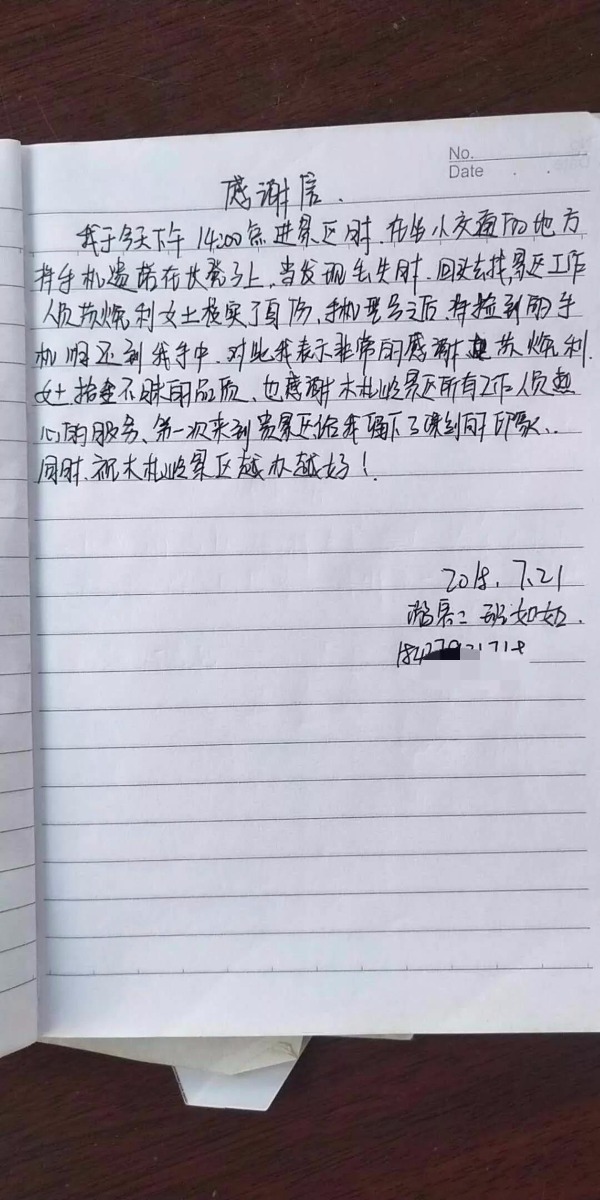 No.
Date
感谢信.
我于今天下午14:00点进景区时.在坐小交通的地方
将手机遗落在长凳子上,当发现丢失时.回头去找,景区工作
人员 利女士核实了身份、手机型号之后,将捡到的手
机归还到我手中.对此我表示非常的感谢 利
女士拾金不昧的品质,也感谢木札岭景区所有工作人员热
心的服务、第一次来到贵景区给我留下了深刻的印象、.
同时、祝木札岭景区越办越好!
2018.7.21
班如姬.